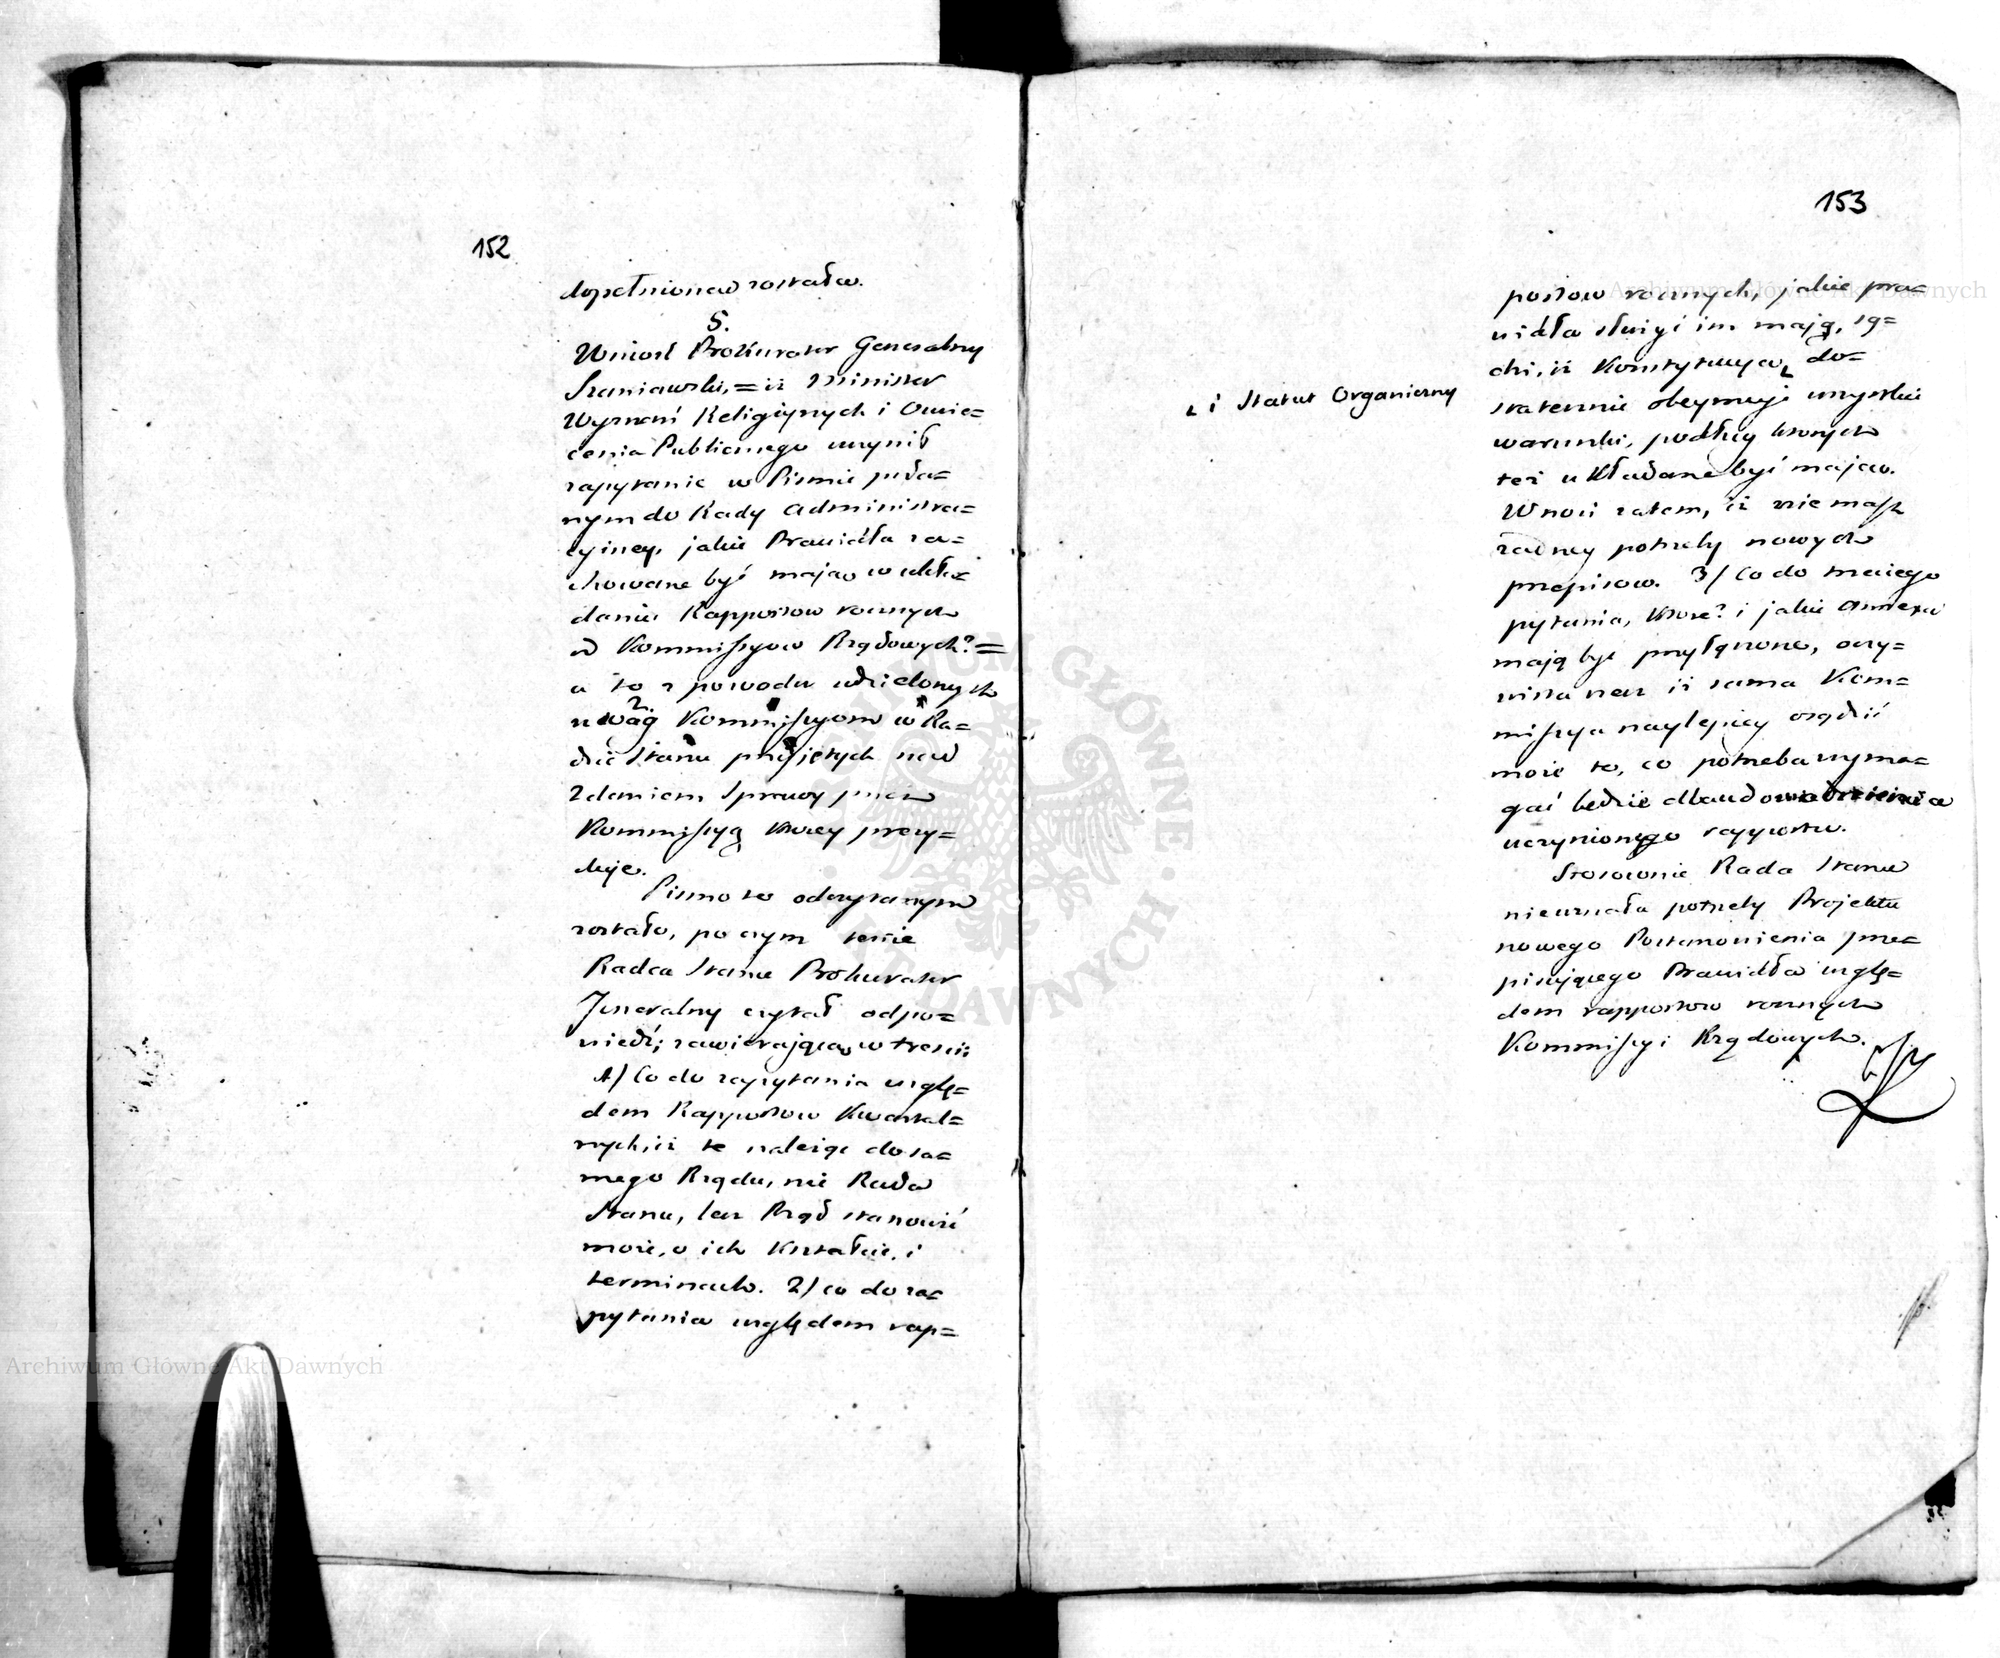 152
dopełniona została.
5.
Wniosł Prokurator Generalny
Szaniawski, = iż Minister
Wyznań Religiynych i Oswie=
cenia Publicznego uczynił
zapytanie w Pismie poda=
nym do Rady Administra=
cyiney, jakie Prawidła za=
chowane być maią w ukła=
daniu Rapportow rocznych
z Kommissyow Rządowych? =
a to z powodu udzielonych
uwag Kommissyom w Ra=
dzie Stanu przyjętych nad
zdaniem sprawy przez
Kommissyą ktorey prezy=
duje.
Pismo to odczytanym
zostało, po czym tenże
Radca Stanu Prokurator
Jeneralny czytał odpo=
wiedź, zawierającą w tresci:
1/ Co do zapytania wzglę=
dem Rapportow Kwartal=
nych, iż te należąc do sa=
mego Rządu, nie Rada
Stanu, lecz Rząd stanowić
może, o ich kształcie, i
terminach. 2/ co do za=
pytania względem rap=
153
portow rocznych, jakie pra=
widła służyć im mają, są=
dzi, iż Konstytucya ⌞ do=
⌞ i Statut Organiczny
statecznie obeymuje wszystkie
warunki, podług ktorych
też układane być mają.
Wnosi zatem, iż nie masz
żadney potrzeby nowych
przepisow. 3/ Co do trzeciego
pytania, ktore? i jakie Annexa
mają być przyłączone, oczy=
wista rzecz iż sama Kom=
missya naylepiey osądzić
może to, co potrzeba wyma=
gać będzie dla udowodnienia
uczynionego rapportu.
Stosownie Rada Stanu
nie uznała potrzeby Projektu
nowego Postanowienia prze=
pisującego Prawidła wzglę=
dem rapportow rocznych
Kommissyi Rządowych.